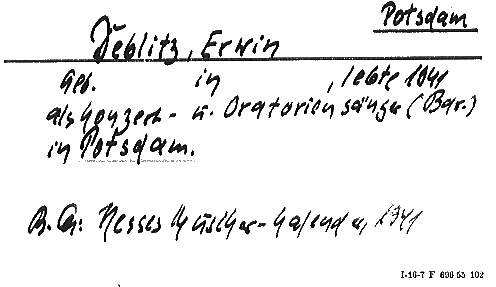 Potsdam
Deblitz, Erwin
Geb. in , lebte 1941
als Konzert- u. Oratoriensänger (Bar.)
in Potsdam.
Hesses Musiker-Kalender, 1941
I-16-7 F 696 55 102